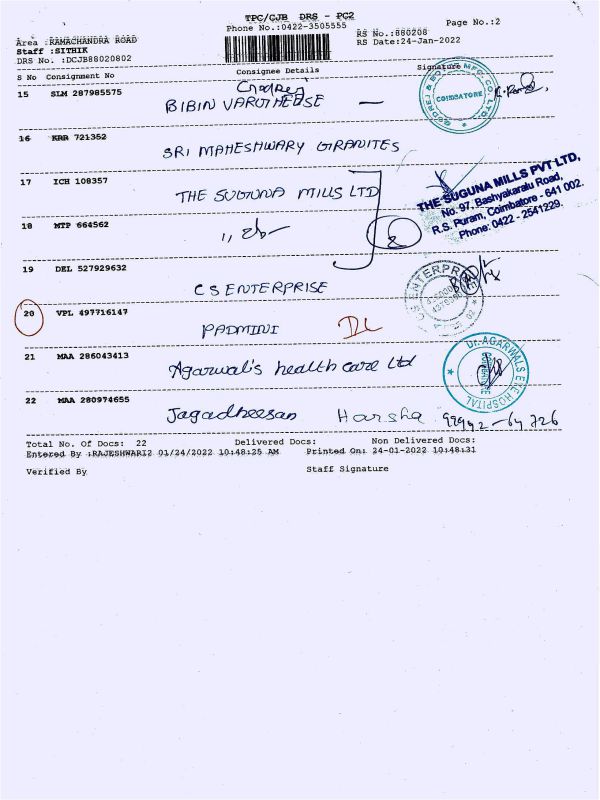 TPC/CJB DRS - PG2
Phone No.:0422-3505555
Page No.:2
Area :RAMACHANDRA ROAD
RS No.:880208
Staff :SITHIK
RS Date:24-Jan-2022
DRS No. :DCJB88020802
S No Consignment No Consignee Details Signature
15 SLM 287985575
BIBIN VARGHEESE
COIMBATORE
16 KRR 721352
SRI MAHESHWARY GRANITES
17 ICH 108357
THE SUGUNA MILLS LTD
THE SUGUNA MILLS PVT LTD,
No. 97, Bashyakaralu Road,
R.S. Puram, Coimbatore - 641 002.
Phone: 0422 - 2541229.
18 MTP 664562
19 DEL 527929632
CS ENTERPRISE
20 VPL 497716147
PADMINI DL
21 MAA 286043413
Agarwal's health care Ltd
Dr. AGARWALS EYE HOSPITAL
22 MAA 280974655
Jagadheesan Harsha
Total No. Of Docs: 22 Delivered Docs: Non Delivered Docs:
Entered By :RAJESHWARI2 01/24/2022 10:48:25 AM Printed On: 24-01-2022 10:48:31
Verified By Staff Signature